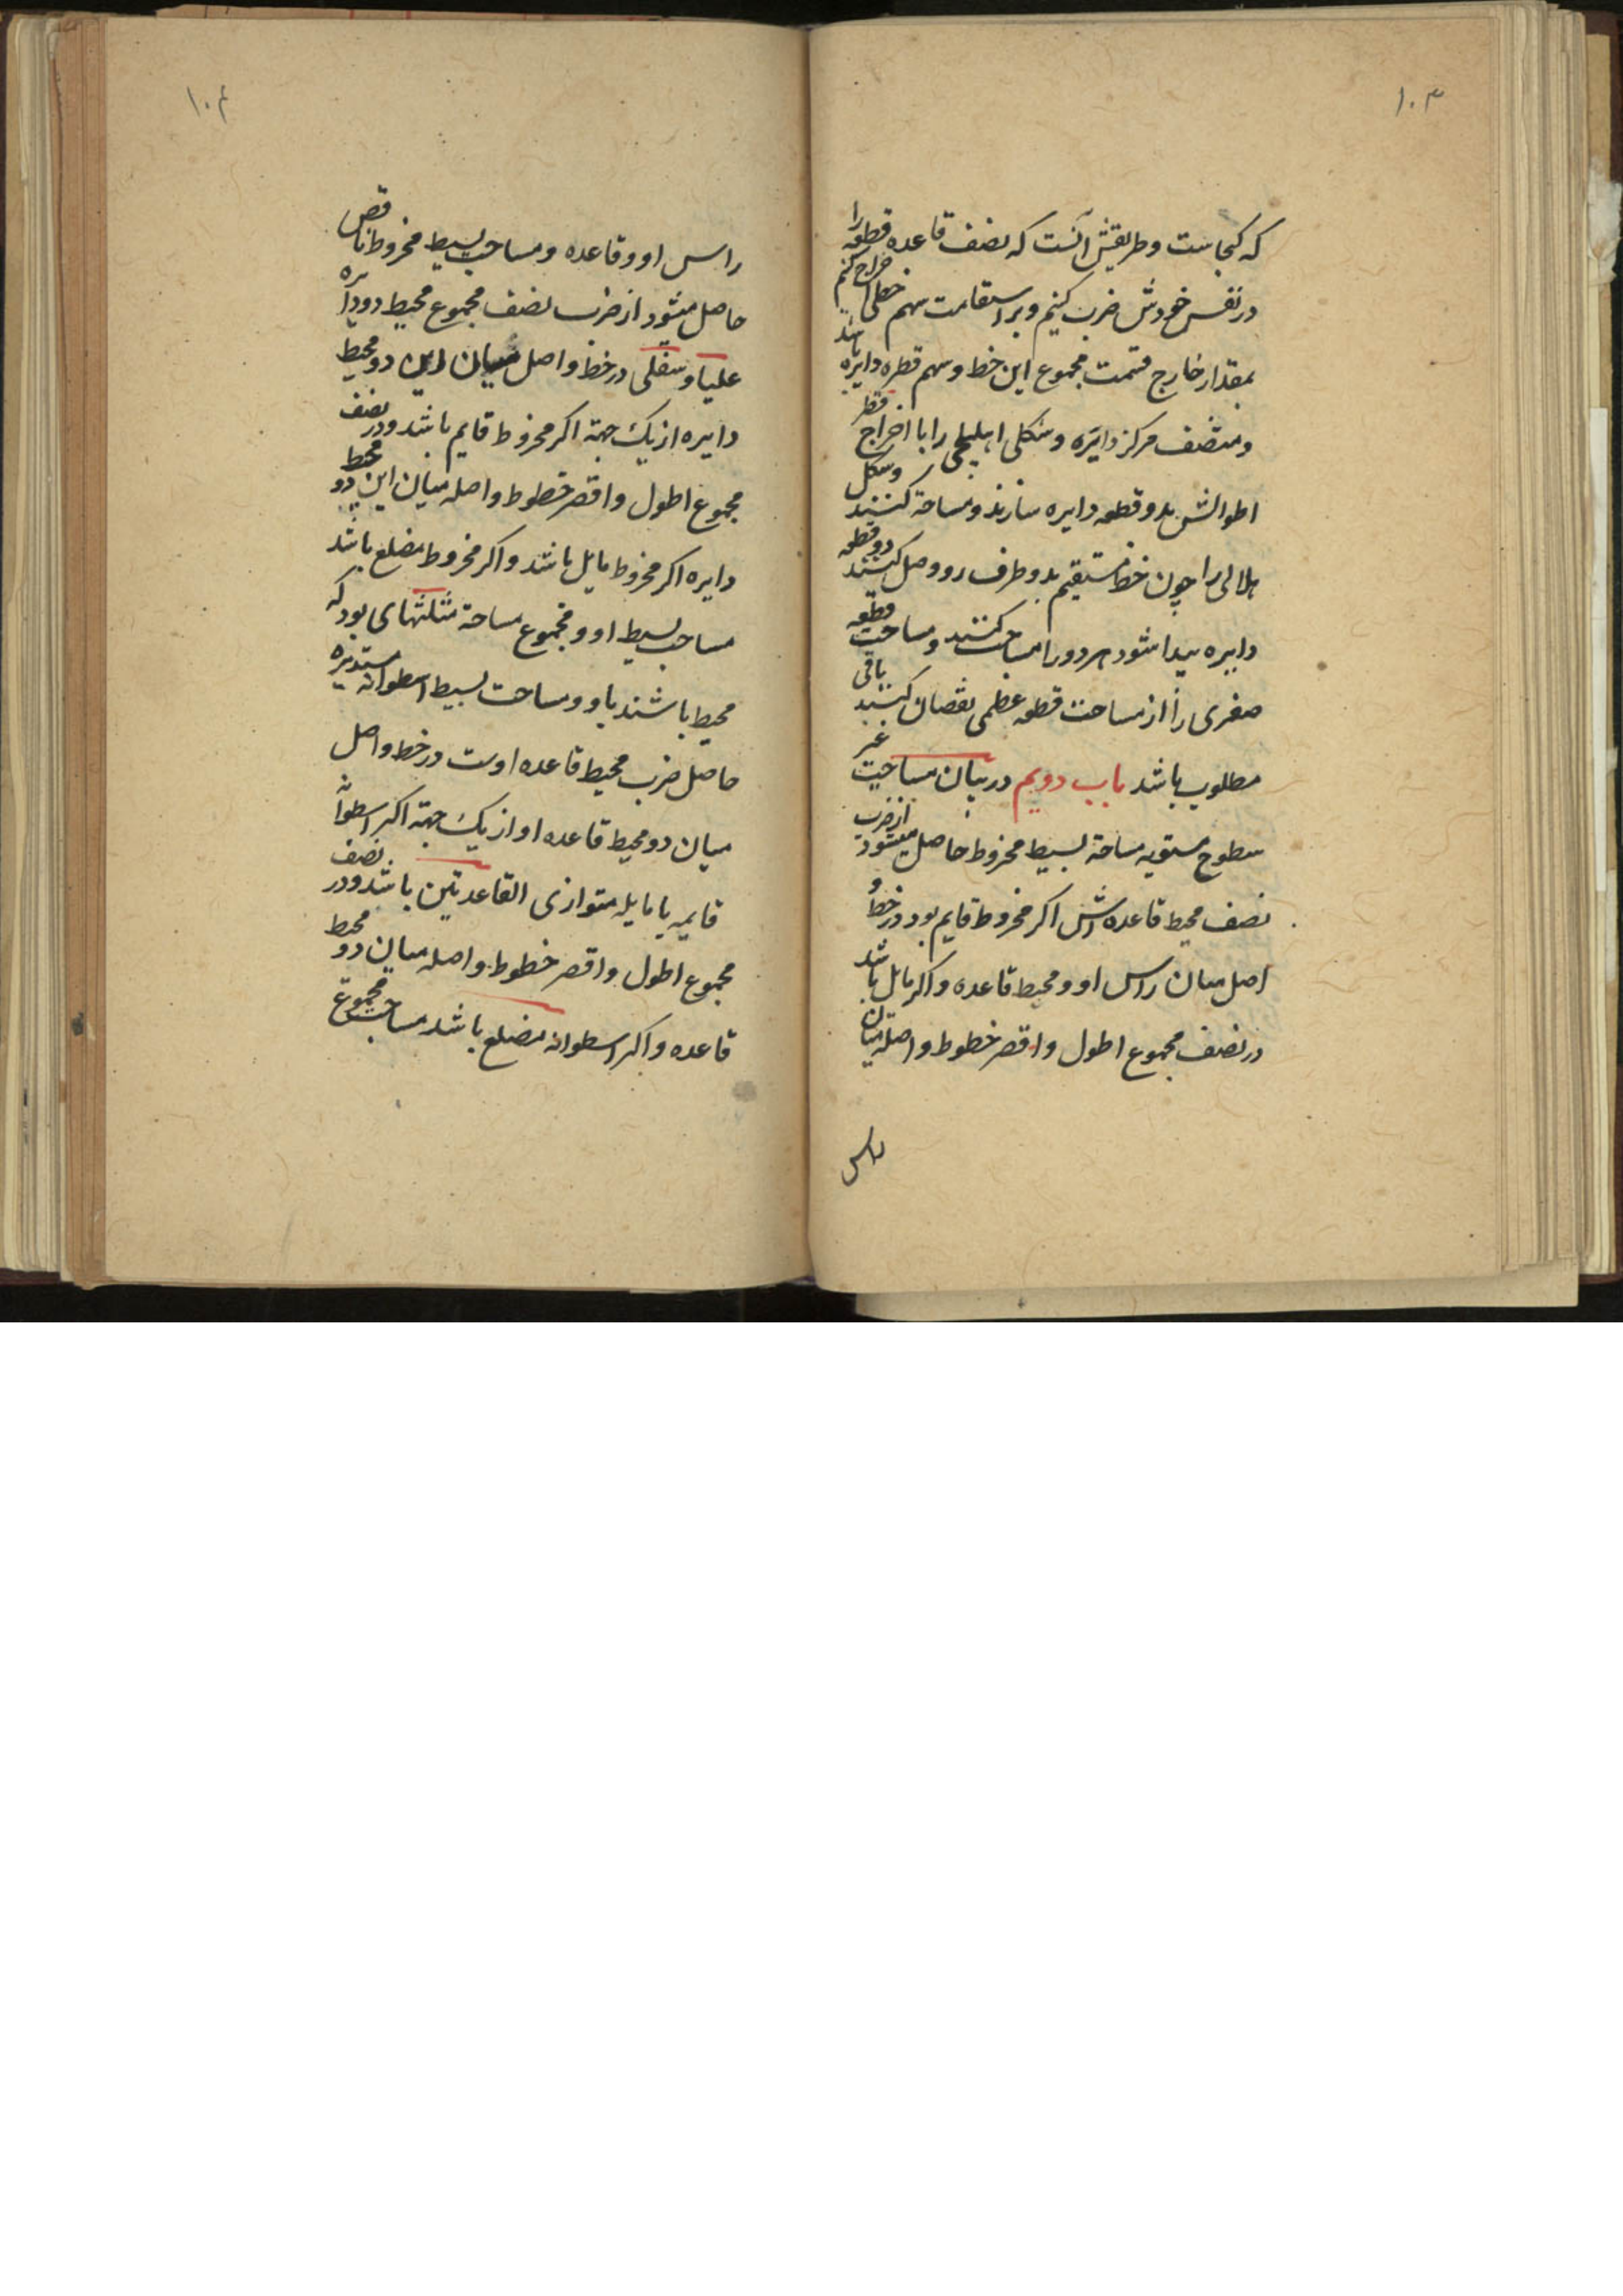 ۱۰۳
که کجاست و طریقش آنست که نصف قاعده قطعه را
در نفس خودش ضرب کنیم و بر استقامت سهم خطی اخراج کنیم
بمقدار خارج قسمت مجموع این خط و سهم قطر دایره باشد
و منتصف مرکز دایره و شکل اهلیلجی را با اخراج قطر
اطوالش بدو قطعه دایره سازند و مساحة کنند و شکل
هلالی را چون خط مستقیم بدو طرف رو وصل کنند دو قطعه
دایره پیدا شود هر دو را مساحت کنند و مساحت قطعه
صغری را از مساحت قطعه عظمی نقصان کنند باقی
مطلوب باشد باب دویم در بیان مساحت غیر
سطوح مستویه مساحة بسیط مخروط حاصل میشود از ضرب
نصف محیط قاعده اش اگر مخروط قایم بود در خط و
اصل میان راس او و محیط قاعده و اگر مایل باشد
در نصف مجموع اطول و اقصر خطوط واصله میان
راس
۱۰۴
راس او و قاعده و مساحت بسیط مخروط ناقص
حاصل میشود از ضرب نصف مجموع محیط دو دایره
علیا و سفلی در خط واصل میان این دو محیط
دایره از یک جهة اکر مخروط قایم باشد و در نصف
مجموع اطول و اقصر خطوط واصله میان این دو محیط
دایره اکر مخروط مایل باشد و اکر مخروط مضلع باشد
مساحت بسیط او و مجموع مساحة مثلثهای بود که
محیط باشند باو و مساحت بسیط اسطوانه مستدیره
حاصل ضرب محیط قاعده اوست در خط واصل
میان دو محیط قاعده او از یک جهة اکر اسطوانه
قایمه یا مایله متوازی القاعدتین باشد و در نصف
مجموع اطول و اقصر خطوط واصله میان دو محیط
قاعده و اکر اسطوانه مضلع باشد مساحت مجموع